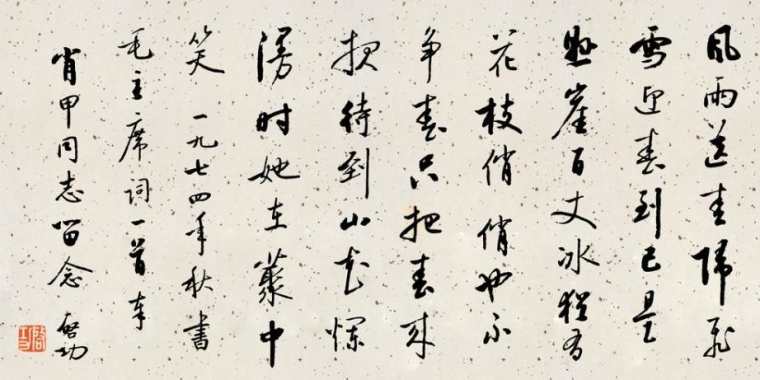 风雨送春归飞
雪迎春到已是
悬崖百丈冰犹有
花枝俏俏也不
争春只把春来
报待到山花烂
漫时她在丛中
笑 一九七四年秋书
毛主席词一首奉
肖甲同志留念 启功